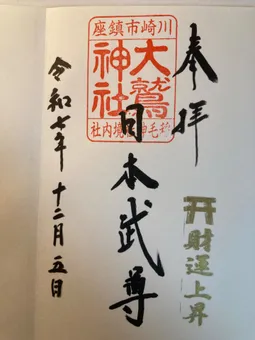 奉拝
財運上昇
川崎市鎮座
大鷲
神社
稲毛神社境内社
日本武尊
令和七年十二月五日